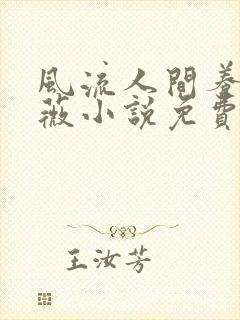 風流人間養
薇小說免費
王汝芳